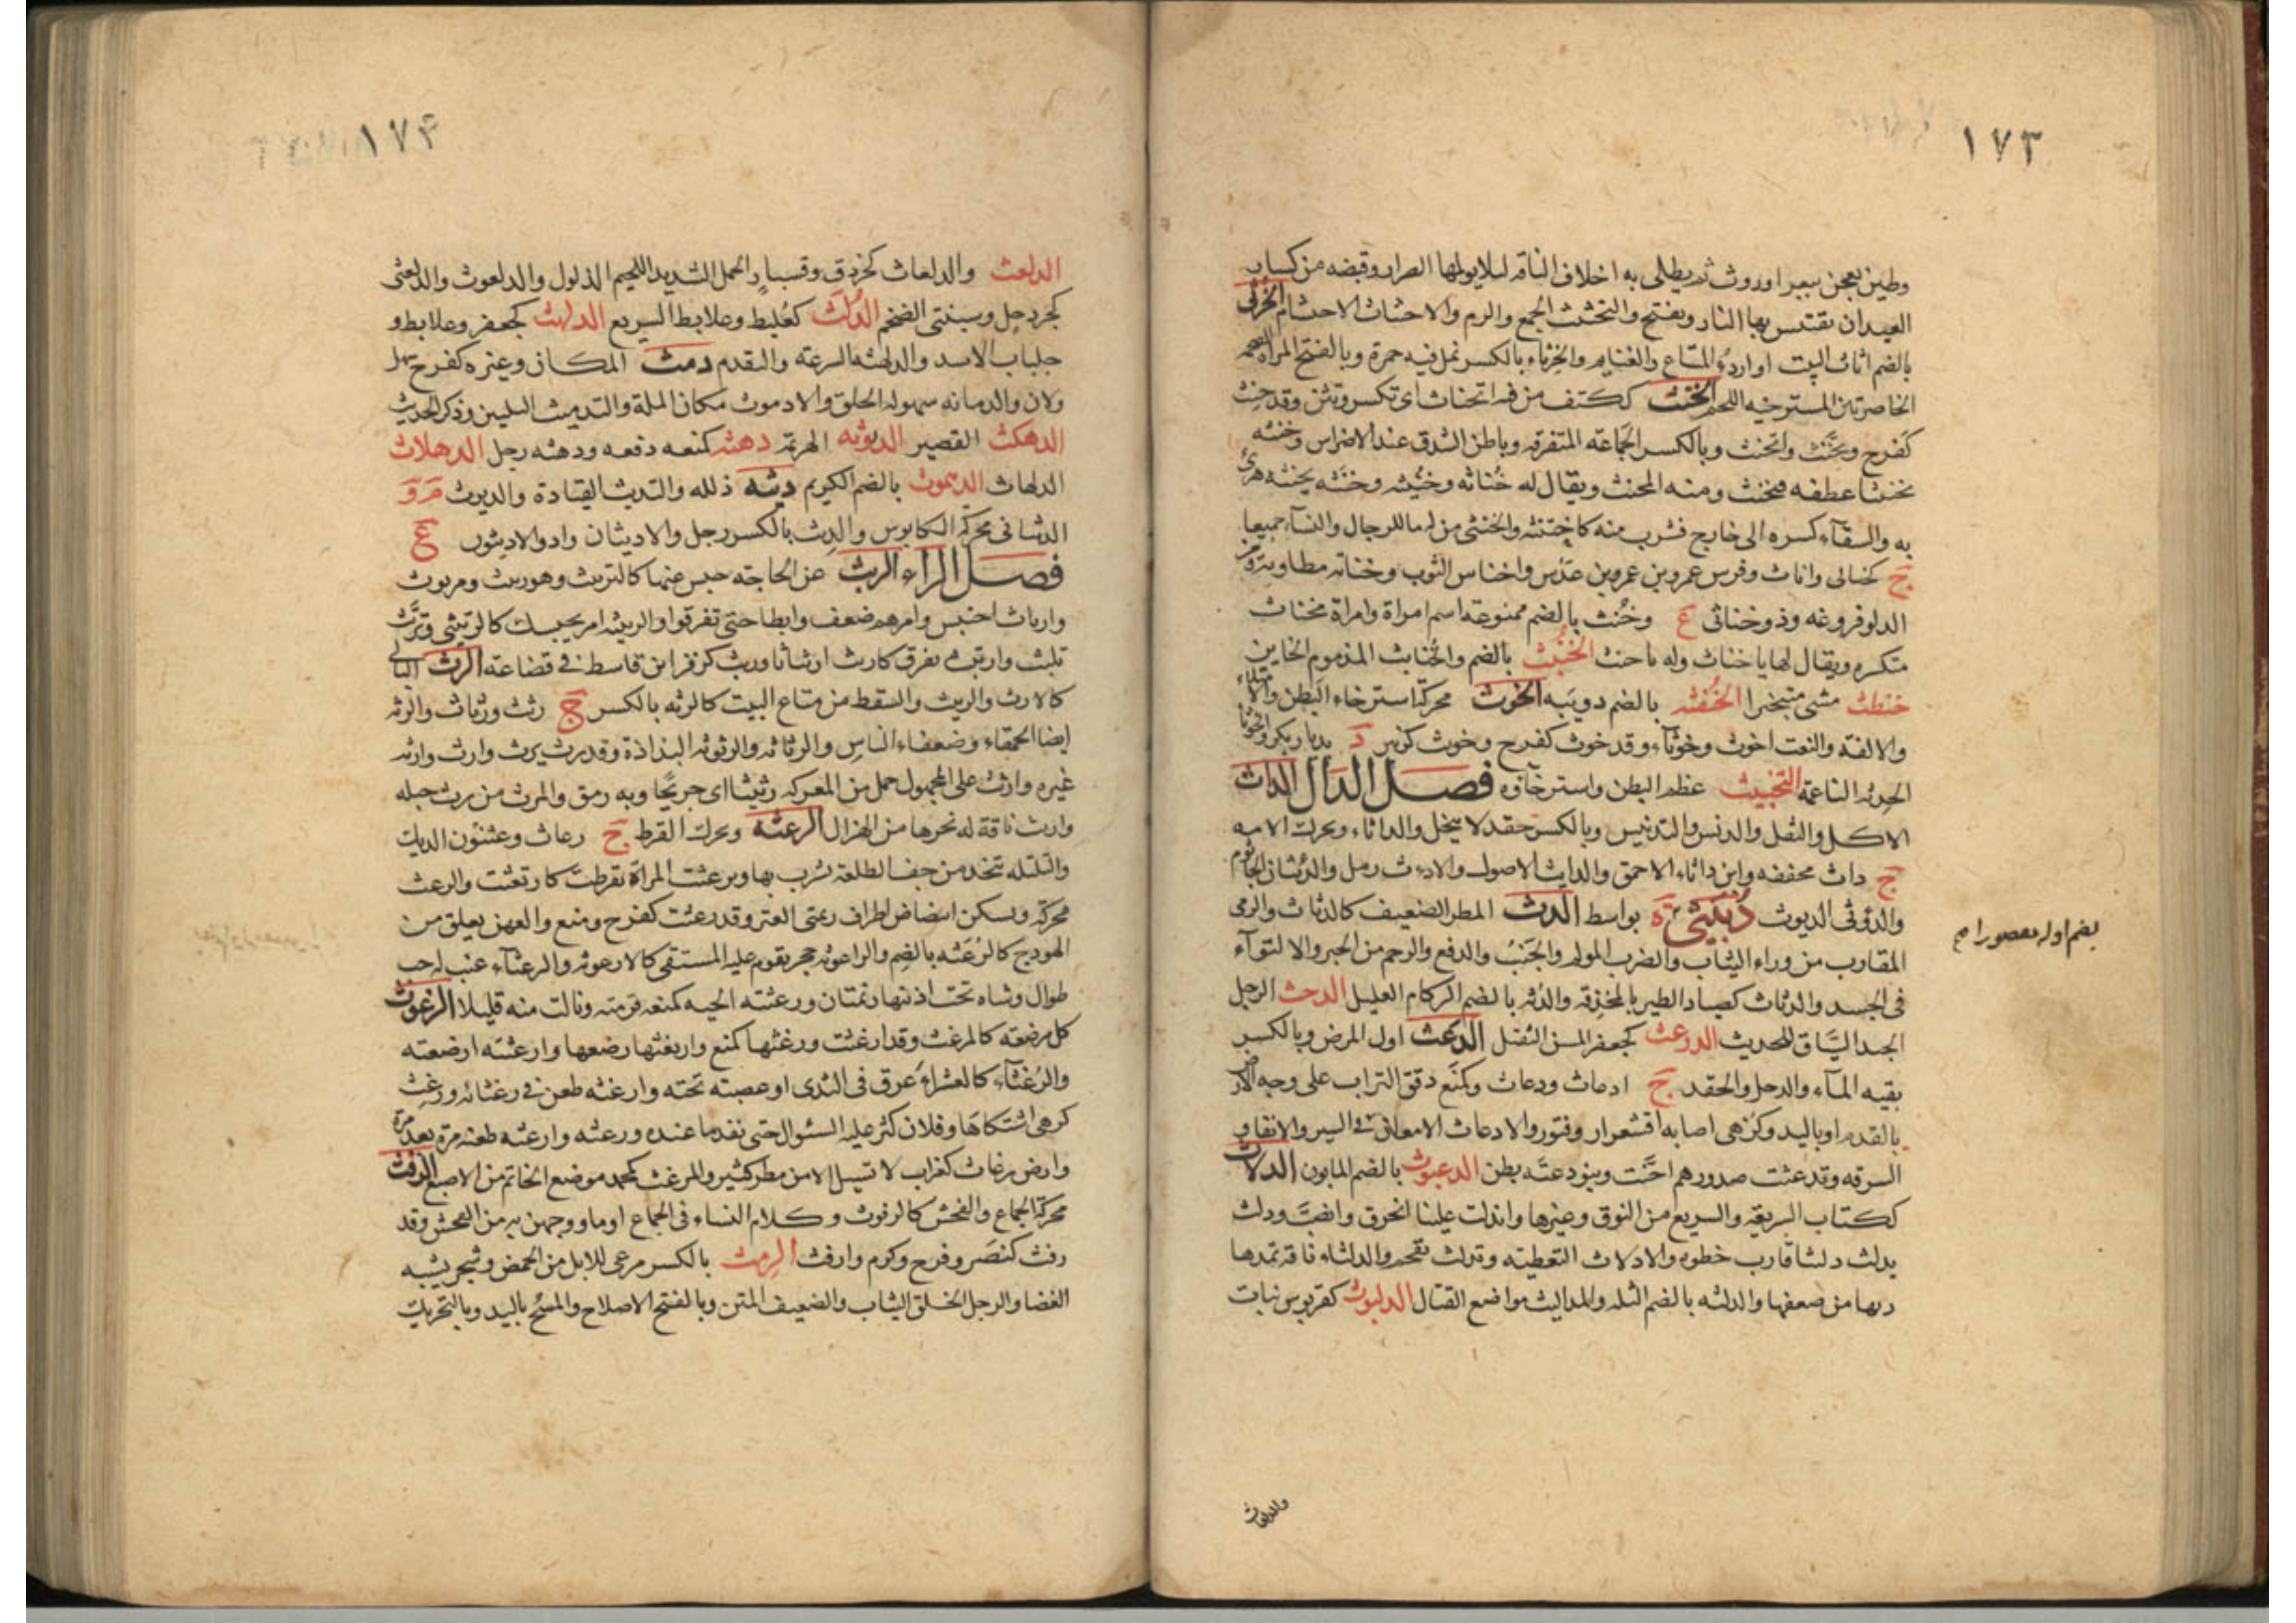 ١٧٣
وطين يعجن ببعر او روث ثم يطلى به اخلاف الناقه ليلا يولمها الصرار وقبضه من كسار
العيدان تقتبس بها النار ويفتح والتخثث الجمع والرم والاحتثاث الاحتشام الخرثى
بالضم اثاث البيت او اردء المتاع والغنايم والخرثاء بالكسر نمل فيه حمرة وبالفتح المراة الضخمه
الخاصرتين المسترخيه اللحم الخنث ككتف من فيه انخناث اى تكسر وتثن وقد خنث
كفرح وتخنث وانخنث وبالكسر الجماعه المتفرقه وباطن الشدق عند الاضراس وخنثه
تخنثا عطفه فتخنث ومنه المخنث ويقال له خناثه وخنيثه وخنثه يخنثه هزئ
به والسقآء كسره الى خارج فشرب منه كاختنثه والخنثى من له ما للرجال والنسآء جميعا
ج كخنالى واناث وفرس عمرو بن عمرو بن عدس واخناس الثوب وخناثه مطاويه ومن
الدلو فروغه وذو خناثى ع وخنث بالضم ممنوعة اسم امراة وامراة مخناث
متكسره ويقال لها يا خناث وله يا خنث الخنبث بالضم والخنابث المذموم الخاين
خنطث مشى متبخترا الخنفثه بالضم دويبه الخوث محركة استرخاء البطن والامتلاء
والالفة والنعت اخوث وخوثآء وقد خوث كفرح وخوث كزبير د بديار بكر والخوثا
الحدثه الناعمة التخبيث عظم البطن واسترخآؤه فصل الدال الداث
الاكل والثقل والدنس والتدنيس وبالكسر حقد لا ينحل والداثاء ويحرك الامه
ج داث مخففه وابن داثاء الاحمق والدايث الاصول والادءث رمل والدئثان الجاثوم
والدؤثى الديوث دبيثى ة بواسط الدث المطر الضعيف كالدثاث والرمى
المقارب من وراء الثياب والضرب المولم والجنب والدفع والرجم من الخبر والالتوآء
فى الجسد والدثاث كصياد الطير بالمخذفه والدثه بالضم الزكام القليل الدحث الرجل
الجيد السياق للحديث الدرعث كجعفر المسن الثقيل الدعث اول المرض وبالكسر
بقيه المآء والدحل والحقد ج ادعاث ودعاث وكمنع دقق التراب على وجه الارض
بالقدم او باليد وكزهى اصابه اقشعرار وفتور والادعاث الامعان فى السير والابقاء و
السرقه وتدعثت صدورهم احنت وبنو دعثه بطن الدعبوث بالضم المابون الدلاث
ككتاب السريعة والسريع من النوق وغيرها واندلث علينا انخرق وانصب ودلث
يدلث دلثا قارب خطوه والادلاث التغطيه وتدلث تقحم والدلثاء ناقه تمدها
من ضعفها والدلثه بالضم الثله والمداليث مواضع القتال الدلبوث كقربوس نبات
بضم اوله مقصورا صح
والدلعاث
١٧٤
الدلعث والدلعاث كخزدق وقسبار الجمل الشديد اللحيم الذلول والدلعوث والدلعثى
كجردحل وسبنتى الضخم الدلث كعلبط وعلابط السريع الدلهث كجعفر وعلابط و
جلباب الاسد والدلهثه السرعه والتقدم دمث المكان وغيره كفرح سهل
ولان والدماثه سهوله الخلق والادموث مكان الملة والتدميث التليين وذكر الحديث
الدهكث القصير الديؤثه الهزيمة دهثه كمنعه دفعه ودهثه رجل الدهلاث
الدلهاث الدهموث بالضم الكريم ديثه ذلله والتديث القيادة والديوث م و
الديثانى محركة الكابوس والديث بالكسر رجل والاديثان واد والاديثون ع
فصل الراء الربث عن الحاجه حبس عنها كالتربيث وهو ربيث ومربوث
وارباث احتبس وامرهم ضعف وابطا حتى تفرقوا والربيثه امر يحبسك كالربيثى وتربث
تلبث وارتبث تفرق كاربث اربثاثا وربث كزفر ابن قاسط فى قضاعة الرث البالى
كالارث والرثيث والسقط من متاع البيت كالرثه بالكسر ج رثث ورثاث والرثه
ايضا الحمقاء وضعفاء الناس والرثاثه والرثوثه البذاذة وقد رث يرث وارث وارثه
غيره وارتث على المجهول حمل من المعركه رثيثا اى جريحا وبه رمق والمرث من رث حبله
وارتث ناقة له نحرها من الهزال الرعثه ويحرك القرط ج رعاث وعثنون الديك
والتلتله تتخذ من جف الطلعة يشرب بها ورعثت المراة تقرطت كارتعثت والرعث
محركة ويسكن ابيضاض اطراف زنمتى العنز وقد رعثت كفرح ومنع والعهن يعلق من
الهودج كالرعثه بالضم والراعوثه حجر يقوم عليه المستقى كالارعوثه والرعثآء عنب له حب
طوال وشاه تحت اذنيها زنمتان ورعثته الحيه كمنعه قرمته ونالت منه قليلا الرغوث
كل مرضعه كالمرغث وقد ارغثت ورغثها كمنع وارتغثها رضعها وارغثته ارضعته
والرغثآء كالعشراء عرق فى الثدى او عصبه تحته وارغثه طعن فى رغثائه ورغث
كزهى اشتكاها وفلان كثر عليه السئوال حتى نفد ما عنده ورغثه وارغثه طعنه مرة بعد مرة
وارض رغاث كغراب لا تسيل الا من مطر كثير والمرغث كمحمد موضع الخاتم من الاصبع الرفث
محركة الجماع والفحش كالرفوث وكلام النساء فى الجماع او ما ووجهن به من الفحش وقد
رفث كنصر وفرح وكرم وارفث الرمث بالكسر مرعى للابل من الحمض وشجر يشبه
الغضا والرجل الخلق الثياب والضعيف المتن وبالفتح الاصلاح والمسح باليد وبالتحريك